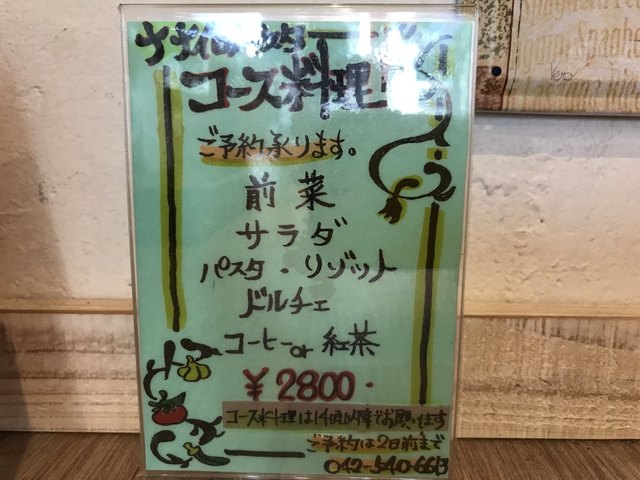 コース料理
ご予約承ります。
前菜
サラダ
パスタ・リゾット
ドルチェ
コーヒーor 紅茶
¥2800.
コース料理は14時以降でお願いします
ご予約は2日前まで
042-540-6613